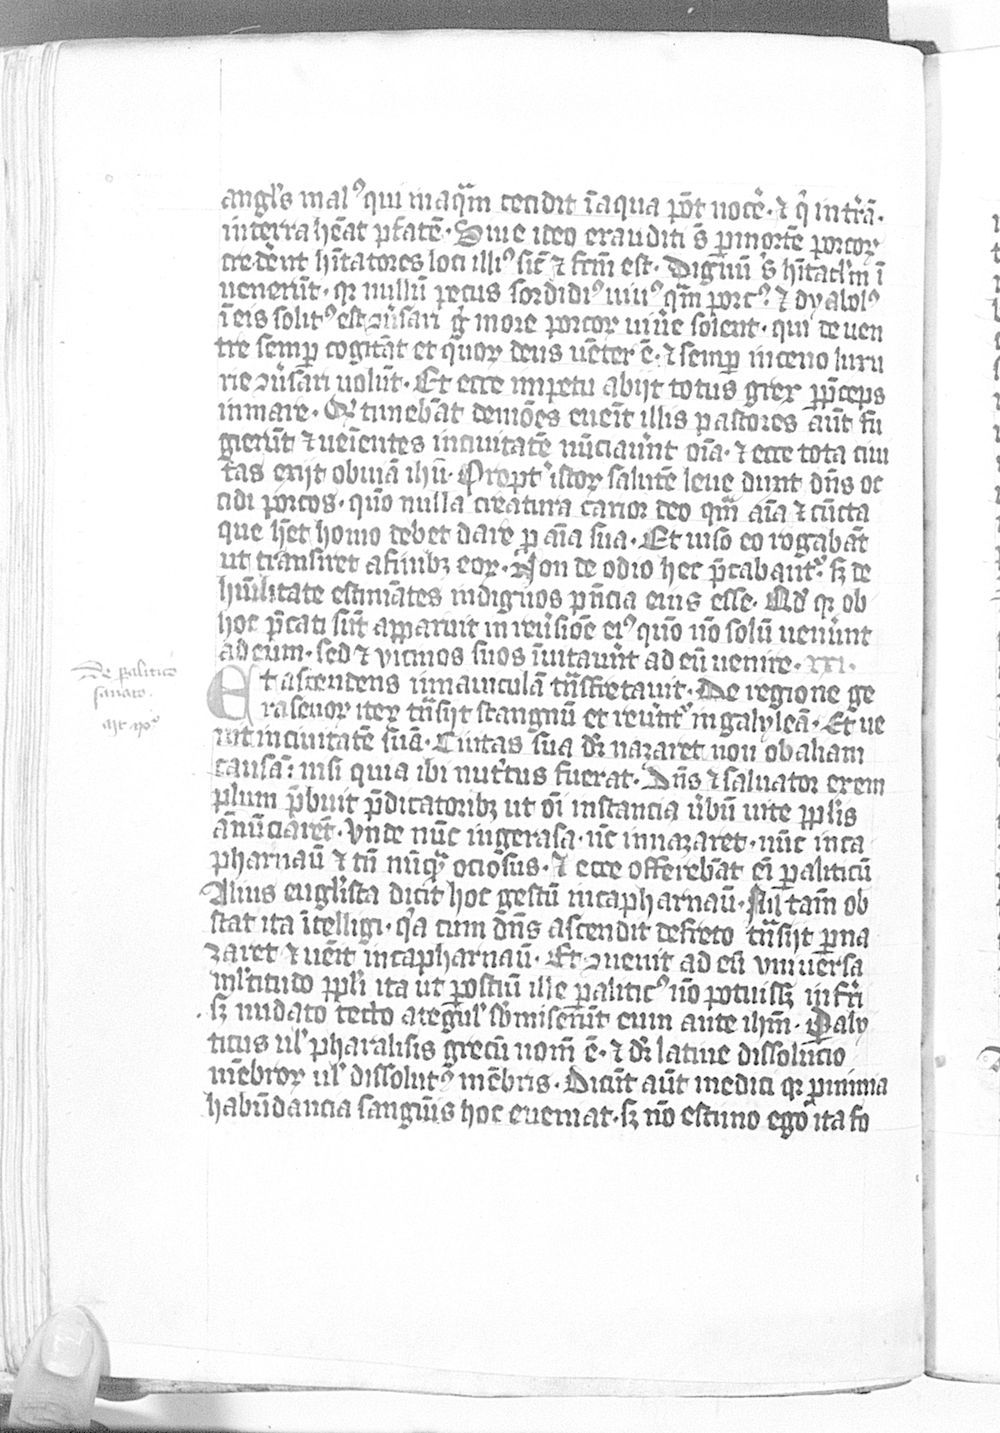 angl's mal⁹ qui inaq̄m cecidit ī aqua pōt nocē · ⁊ q̇ in tr̄a ·
in terra hēat ptatē · Siue ideo exauditi s̄ p̱ morte porcoꝝ
crederēt hītatores loci illi⁹ sic̄ ⁊ fc̄m est · Dignū s̄ hītac̄lm ī
uenerūt · qr nullū pecus sordidi⁹ uiui⁹ qm̄ porc⁹ ⁊ dyabol⁹
ī eis solit⁹ est ꝯūsari q̇ more porcoꝝ uiūe solent · qui de uen
tre semp̱ cogitāt et quoꝝ deus uēter ē · ⁊ semp̱ in ceno luxu
rie ꝯūsari uolūt · Et ecce impetu abijt totus grex p̱p̄ceps
in mare · Qd timebāt demōes euēit illis pastores aūt fu
gierūt ⁊ ueīentes in ciuitatē nūciauer̄t oīa · ⁊ ecce tota ciui
tas exijt obuiā ihū · Propt' istoꝝ salutē leue duxit dn̄s oc
cidi porcos · quō nulla creatura carior deo qm̄ aīa ⁊ cūcta
que hēt homo debet dare p̱ aīa sua · Et uiso eo rogabāt
ut transiret a finibꝫ eoꝝ · Non de odio hec p̄cabant⁹ · sꝫ de
hūilitate estimātes indignos pn̄cia eius esse · Qd qr ob
hoc p̄cati sūt apparuit in reūsiōe ei⁹ quō nō solū uenerūt
ad eum · sed ⁊ uicinos suos īuitauer̄t ad eū uenire · xxi ·
De palitico
sanato ·
Et ascendens in nauiculā tn̄sfretauit · De regione ge
rasenoꝝ iteꝝ tn̄sijt stangnū et reuert⁹ in galyleā · Et ue
nit in ciuitatē suā · Ciuitas sua dr̄ nazaret non ob aliam
causā : nisi quia ibi nutritus fuerat · Dn̄s ⁊ saluator exem
plum p̄buit p̄dicatoribꝫ ut om̄i instancia ūbū uite ppl'is
ānūciarēt · Vnde nūc in gerasa · nūc in nazaret · nūc in ca
pharnaū ⁊ tn̄ nūq̄ ociosus · ⁊ ecce offerebāt ei p̱aliticū
Alius eugl'ista dicit hoc gestū in capharnaū · Nil' tam̄ ob
stat ita ītelligi · q̇a cum dn̄s ascendit de freto tn̄sijt p̱ na
zaret ⁊ uēit in capharnaū · Et ꝯuenit ad eū vniuersa
ml'titudo ppl'i ita ut p̱ ostiū ille p̱alitic⁹ nō potuissꝫ inf̄ri
sꝫ nudato tecto a tegul' sb̄miserūt eum ante ihm̄ · Paly
ticus ul' pharalisis grecū nom̄ ē · ⁊ dr̄ latine dissolucio
mēbroꝝ ul' dissolut⁹ mēbris · Dicūt aūt medici qr p̱ nimia
habūdancia sangūis hoc eueniat · sꝫ nō estimo ego ita fo